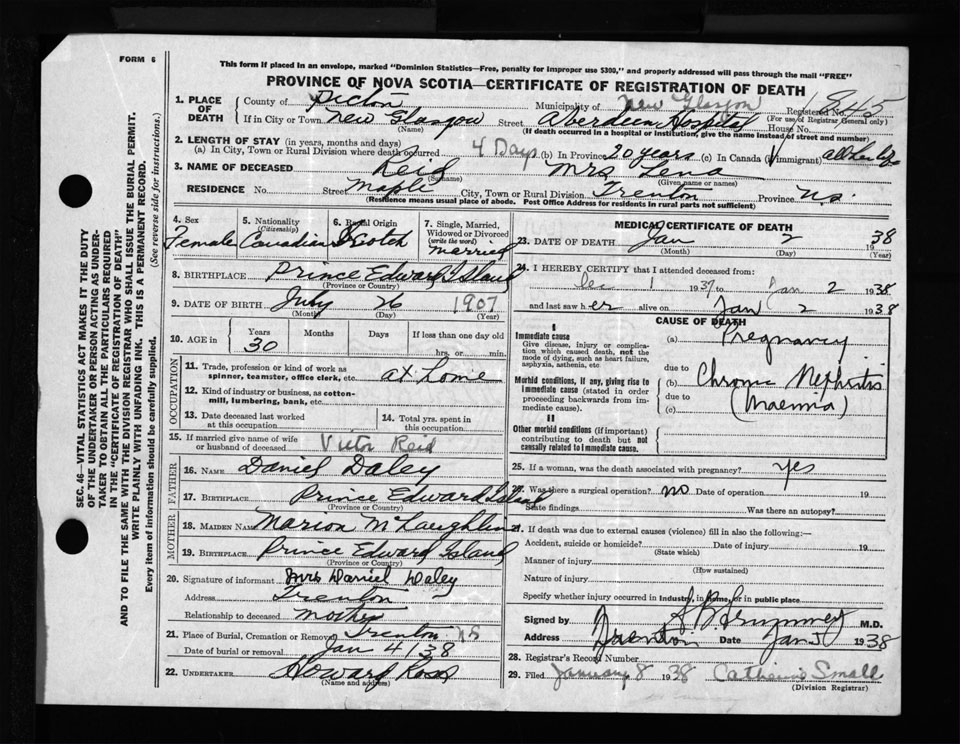 FORM 6
This form if placed in an envelope, marked "Dominion Statistics—Free, penalty for improper use $300," and properly addressed will pass through the mail "FREE"
PROVINCE OF NOVA SCOTIA—CERTIFICATE OF REGISTRATION OF DEATH
1. PLACE OF DEATH
County of Pictou Municipality of New Glasgow Registered No. 845
(For use of Registrar General only)
If in City or Town New Glasgow Street Aberdeen Hospital House No.
(Name) (If death occurred in a hospital or institution, give the name instead of street and number)
2. LENGTH OF STAY (in years, months and days)
(a) In City, Town or Rural Division where death occurred 4 Days (b) In Province 20 years (c) In Canada (if immigrant) all her life
3. NAME OF DECEASED Reid Mrs Lena
(Surname) (Given name or names)
RESIDENCE No. Street Maple City, Town or Rural Division Trenton Province N.S.
(Residence means usual place of abode. Post Office Address for residents in rural parts not sufficient)
4. Sex
Female
5. Nationality
(Citizenship)
Canadian
6. Racial Origin
Scotch
7. Single, Married, Widowed or Divorced
(write the word)
Married
8. BIRTHPLACE Prince Edward Island
(Province or Country)
9. DATE OF BIRTH July 26 1907
(Month) (Day) (Year)
10. AGE in
Years Months Days If less than one day old
30
hrs. or min.
OCCUPATION
11. Trade, profession or kind of work as spinner, teamster, office clerk, etc. at home
12. Kind of industry or business, as cotton-mill, lumbering, bank, etc.
13. Date deceased last worked at this occupation
14. Total yrs. spent in this occupation
15. If married give name of wife or husband of deceased Victor Reid
FATHER
16. NAME Daniel Daley
17. BIRTHPLACE Prince Edward Island
(Province or Country)
MOTHER
18. MAIDEN NAME Marion McLaughlin
19. BIRTHPLACE Prince Edward Island
(Province or Country)
20. Signature of informant Mrs Daniel Daley
Address Trenton
Relationship to deceased Mother
21. Place of Burial, Cremation or Removal Trenton NS
Date of burial or removal Jan 4/38
22. UNDERTAKER Howard Ross
(Name and address)
MEDICAL CERTIFICATE OF DEATH
23. DATE OF DEATH Jan 2 1938
(Month) (Day) (Year)
24. I HEREBY CERTIFY that I attended deceased from:
Dec 1 1937 to Jan 2 1938
and last saw her alive on Jan 2 1938
CAUSE OF DEATH
I
Immediate cause
Give disease, injury or complication which caused death, not the mode of dying, such as heart failure, asphyxia, asthenia, etc.
(a) Pregnancy
due to
Morbid conditions, if any, giving rise to immediate cause (stated in order proceeding backwards from immediate cause).
(b) Chronic Nephritis
due to
(c)
II
Other morbid conditions (if important) contributing to death but not causally related to immediate cause.
25. If a woman, was the death associated with pregnancy? yes
26. Was there a surgical operation? no Date of operation 19
State findings Was there an autopsy?
27. If death was due to external causes (violence) fill in also the following:—
Accident, suicide or homicide? Date of injury 19
(State which)
Manner of injury
(How sustained)
Nature of injury
Specify whether injury occurred in Industry, in Home, or in public place
Signed by M.D.
Address Trenton Date Jan 5 1938
28. Registrar's Record Number
29. Filed January 8 1938 Catherine Small
(Division Registrar)
SEC. 46—VITAL STATISTICS ACT MAKES IT THE DUTY
OF THE UNDERTAKER OR PERSON ACTING AS UNDER-
TAKER TO OBTAIN ALL THE PARTICULARS REQUIRED
IN THE "CERTIFICATE OF REGISTRATION OF DEATH"
AND TO FILE THE SAME WITH THE DIVISION REGISTRAR WHO SHALL ISSUE THE BURIAL PERMIT.
WRITE PLAINLY WITH UNFADING INK. THIS IS A PERMANENT RECORD.
Every item of information should be carefully supplied. (See reverse side for instructions.)